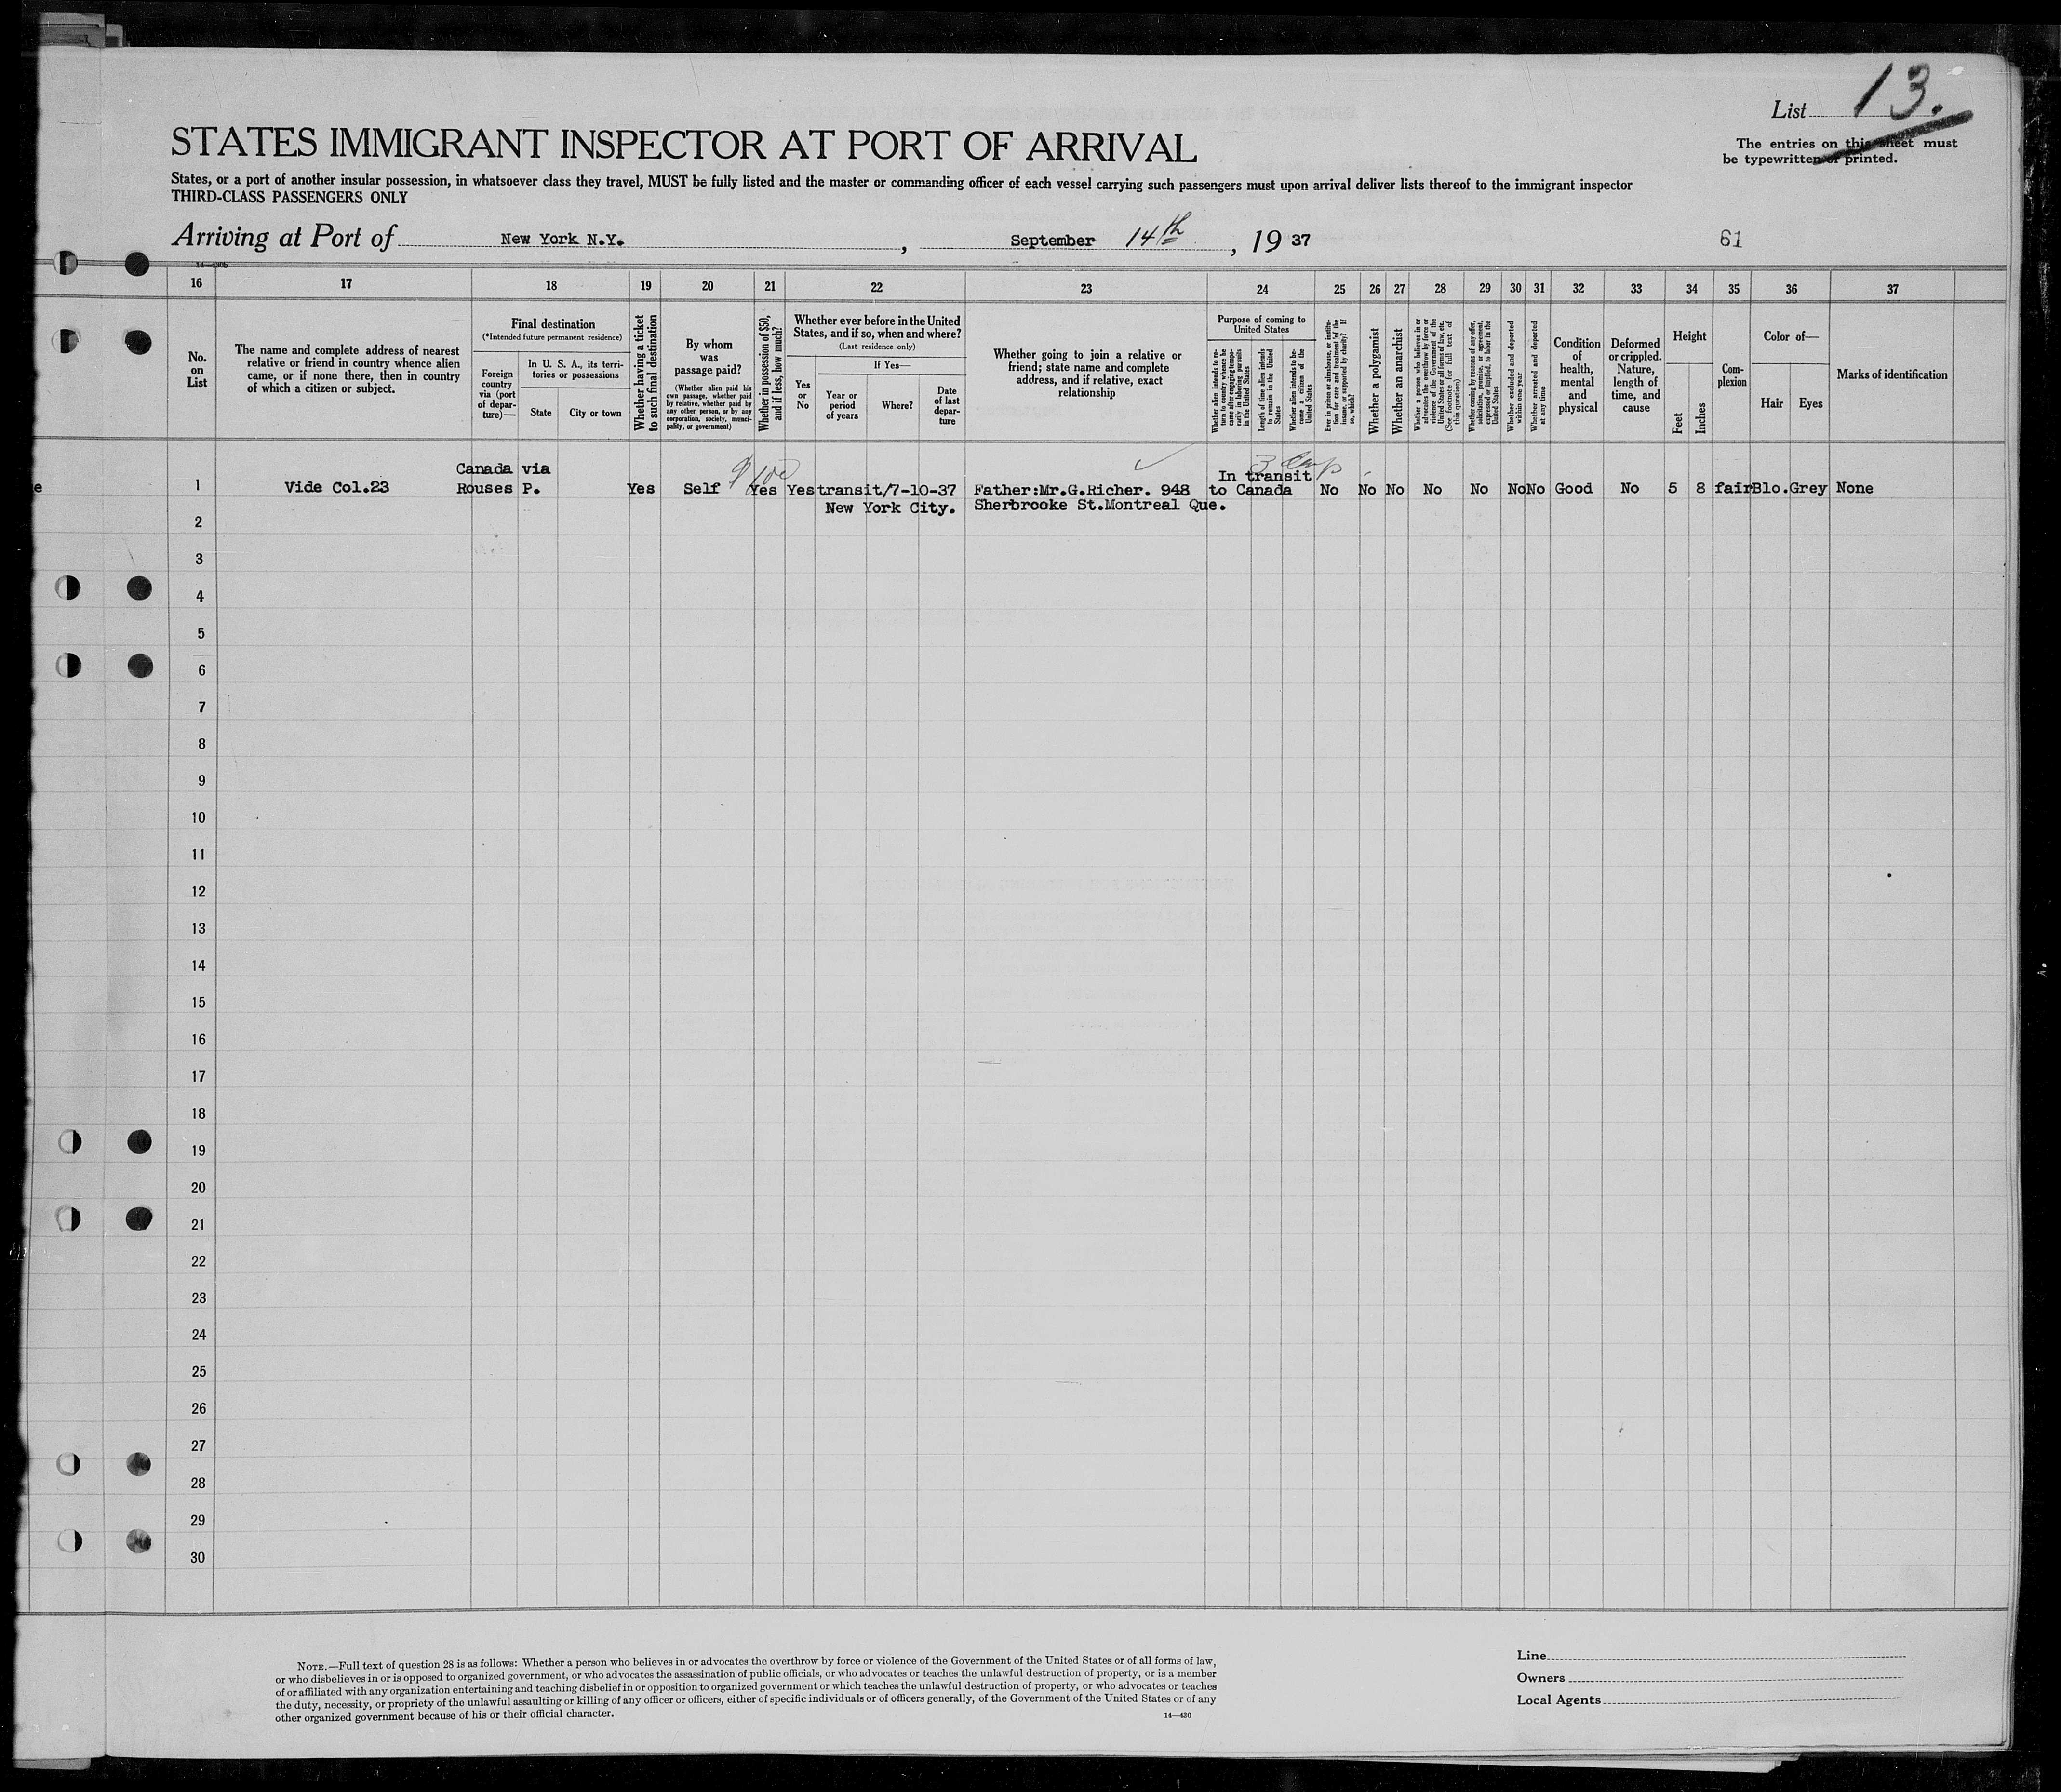 List 13.
The entries on this sheet must
be typewritten or printed.
STATES IMMIGRANT INSPECTOR AT PORT OF ARRIVAL
States, or a port of another insular possession, in whatsoever class they travel, MUST be fully listed and the master or commanding officer of each vessel carrying such passengers must upon arrival deliver lists thereof to the immigrant inspector
THIRD-CLASS PASSENGERS ONLY
Arriving at Port of New York N.Y. , September 14th , 19 37
61
16 17 18 19 20 21 22 23 24 25 26 27 28 29 30 31 32 33 34 35 36 37
No.
on
List
The name and complete address of nearest
relative or friend in country whence alien
came, or if none there, then in country
of which a citizen or subject.
Final destination
(*Intended future permanent residence)
Foreign
country
via (port
of depar-
ture)—
In U. S. A., its terri-
tories or possessions
State
City or town
Whether having a ticket
to such final destination
By whom
was
passage paid?
(Whether alien paid his
own passage, whether paid
by relative, whether paid by
any other person, or by any
corporation, society, munici-
pality, or government)
Whether in possession of $50,
and if less, how much?
Whether ever before in the United
States, and if so, when and where?
(Last residence only)
Yes
or
No
If Yes—
Year or
period
of years
Where?
Date
of last
depar-
ture
Whether going to join a relative or
friend; state name and complete
address, and if relative, exact
relationship
Purpose of coming to
United States
Whether alien intends to re-
turn to country whence he
came after engaging tempo-
rarily in laboring pursuits
in the United States
Length of time alien intends
to remain in the United
States
Whether alien intends to be-
come a citizen of the
United States
Ever in prison or almshouse, or institu-
tion for care and treatment of the
insane, or supported by charity? If
so, which?
Whether a polygamist
Whether an anarchist
Whether a person who believes in or
advocates the overthrow by force or
violence of the Government of the
United States or all forms of law, etc.
(See footnote for full text of
this question)
Whether coming by reasons of any offer,
solicitation, promise, or agreement,
expressed or implied, to labor in the
United States
Whether excluded and deported
within one year
Whether arrested and deported
at any time
Condition
of
health,
mental
and
physical
Deformed
or crippled.
Nature,
length of
time, and
cause
Height
Feet
Inches
Com-
plexion
Color of—
Hair
Eyes
Marks of identification
$100
Canada via In transit
e 1 Vide Col.23 Rouses P. Yes Self Yes Yes transit/7-10-37 Father:Mr.G.Richer. 948 to Canada No No No No No No No Good No 5 8 fair Blo. Grey None
New York City. Sherbrooke St.Montreal Que.
2
3
4
5
6
7
8
9
10
11
12
13
14
15
16
17
18
19
20
21
22
23
24
25
26
27
28
29
30
NOTE.—Full text of question 28 is as follows: Whether a person who believes in or advocates the overthrow by force or violence of the Government of the United States or of all forms of law,
or who disbelieves in or is opposed to organized government, or who advocates the assassination of public officials, or who advocates or teaches the unlawful destruction of property, or is a member
of or affiliated with any organization entertaining and teaching disbelief in or opposition to organized government or which teaches the unlawful destruction of property, or who advocates or teaches
the duty, necessity, or propriety of the unlawful assaulting or killing of any officer or officers, either of specific individuals or of officers generally, of the Government of the United States or of any
other organized government because of his or their official character.
14—430
Line
Owners
Local Agents